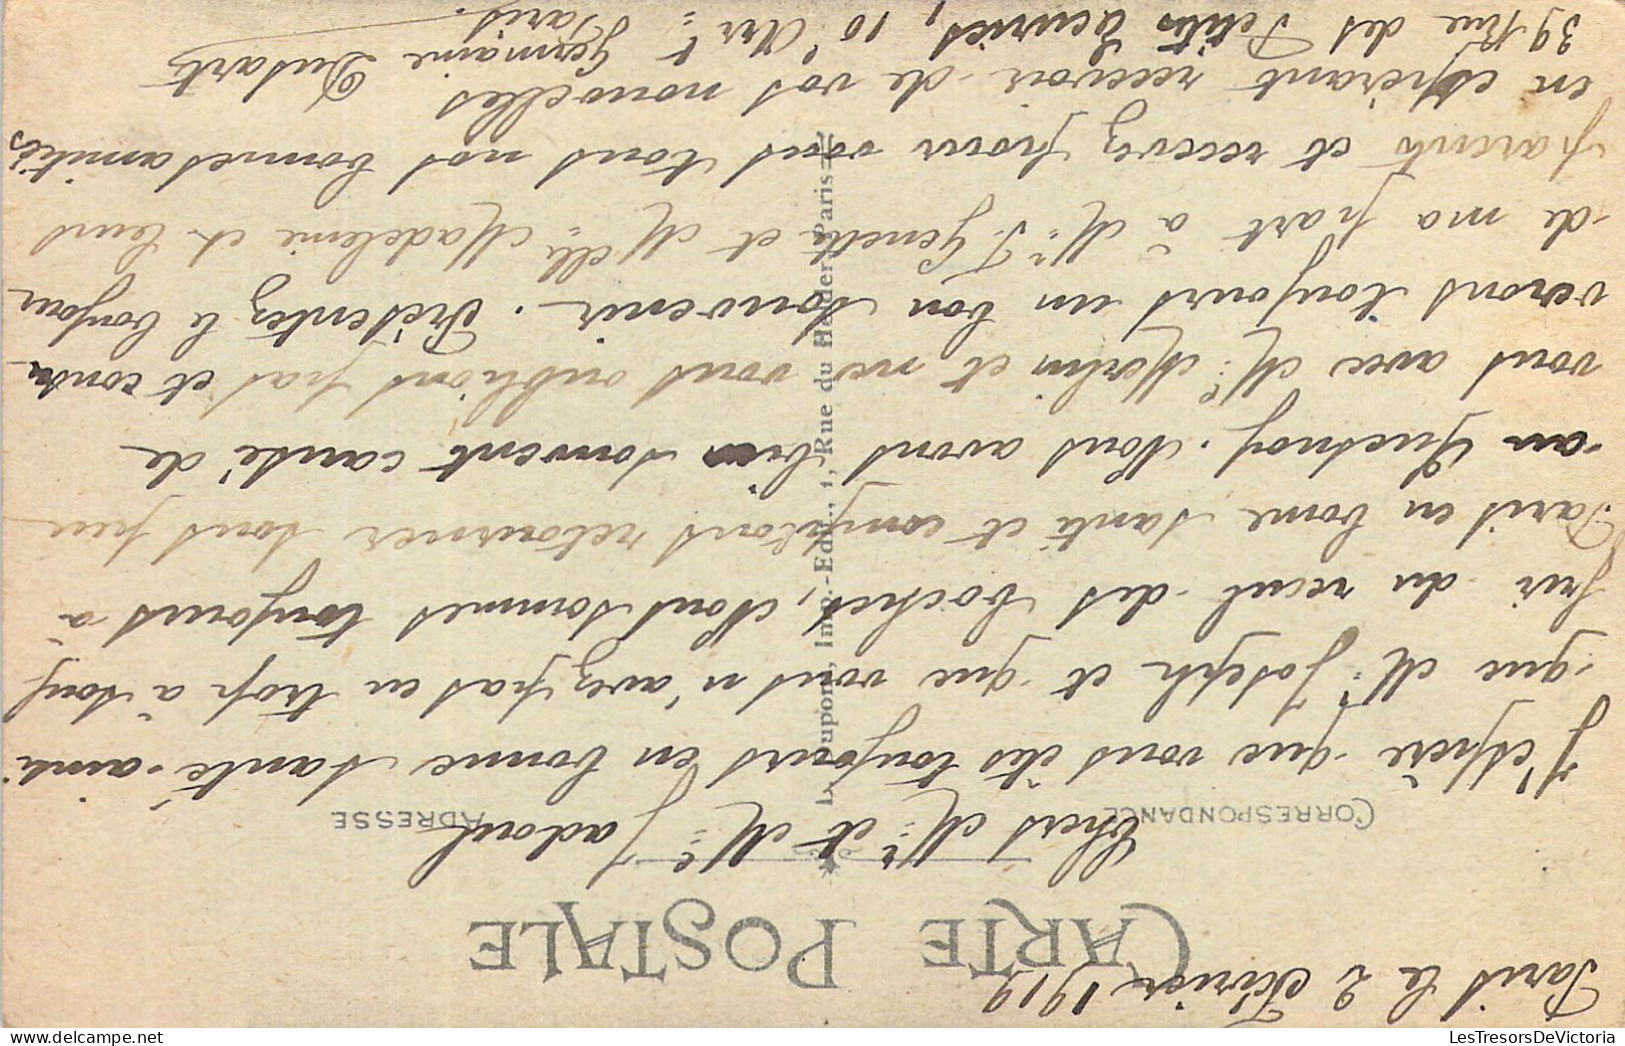 Paris le 2 Février 1919
CARTE POSTALE
Chers Mr et Me Jadoul
CORRESPONDANCE
ADRESSE
J'espère que vous êtes toujours en bonne santé ainsi
que Mr Joseph et que vous n'avez pas eu trop à souf
frir du recul des boches, Nous sommes toujours à
Paris en bonne santé et comptons retourner sous peu
au Quesnoy. Nous avons bien souvent causé de
vous avec Me Merlin et ne vous oublions pas et conser
verons toujours un bon souvenir. Présentez le bonjour
de ma part à Mr J. Genette et Melle Madeleine et leurs
parents et recevez pour vous tous nos bonnes amitiés
en espérant recevoir de vos nouvelles
Germaine Dusart
39 Rue des Petites Ecuries, 10e Arrt Paris.
L. Poupon, Imp.-Edit., 11, Rue du Helder, Paris
LesTresorsDeVictoria